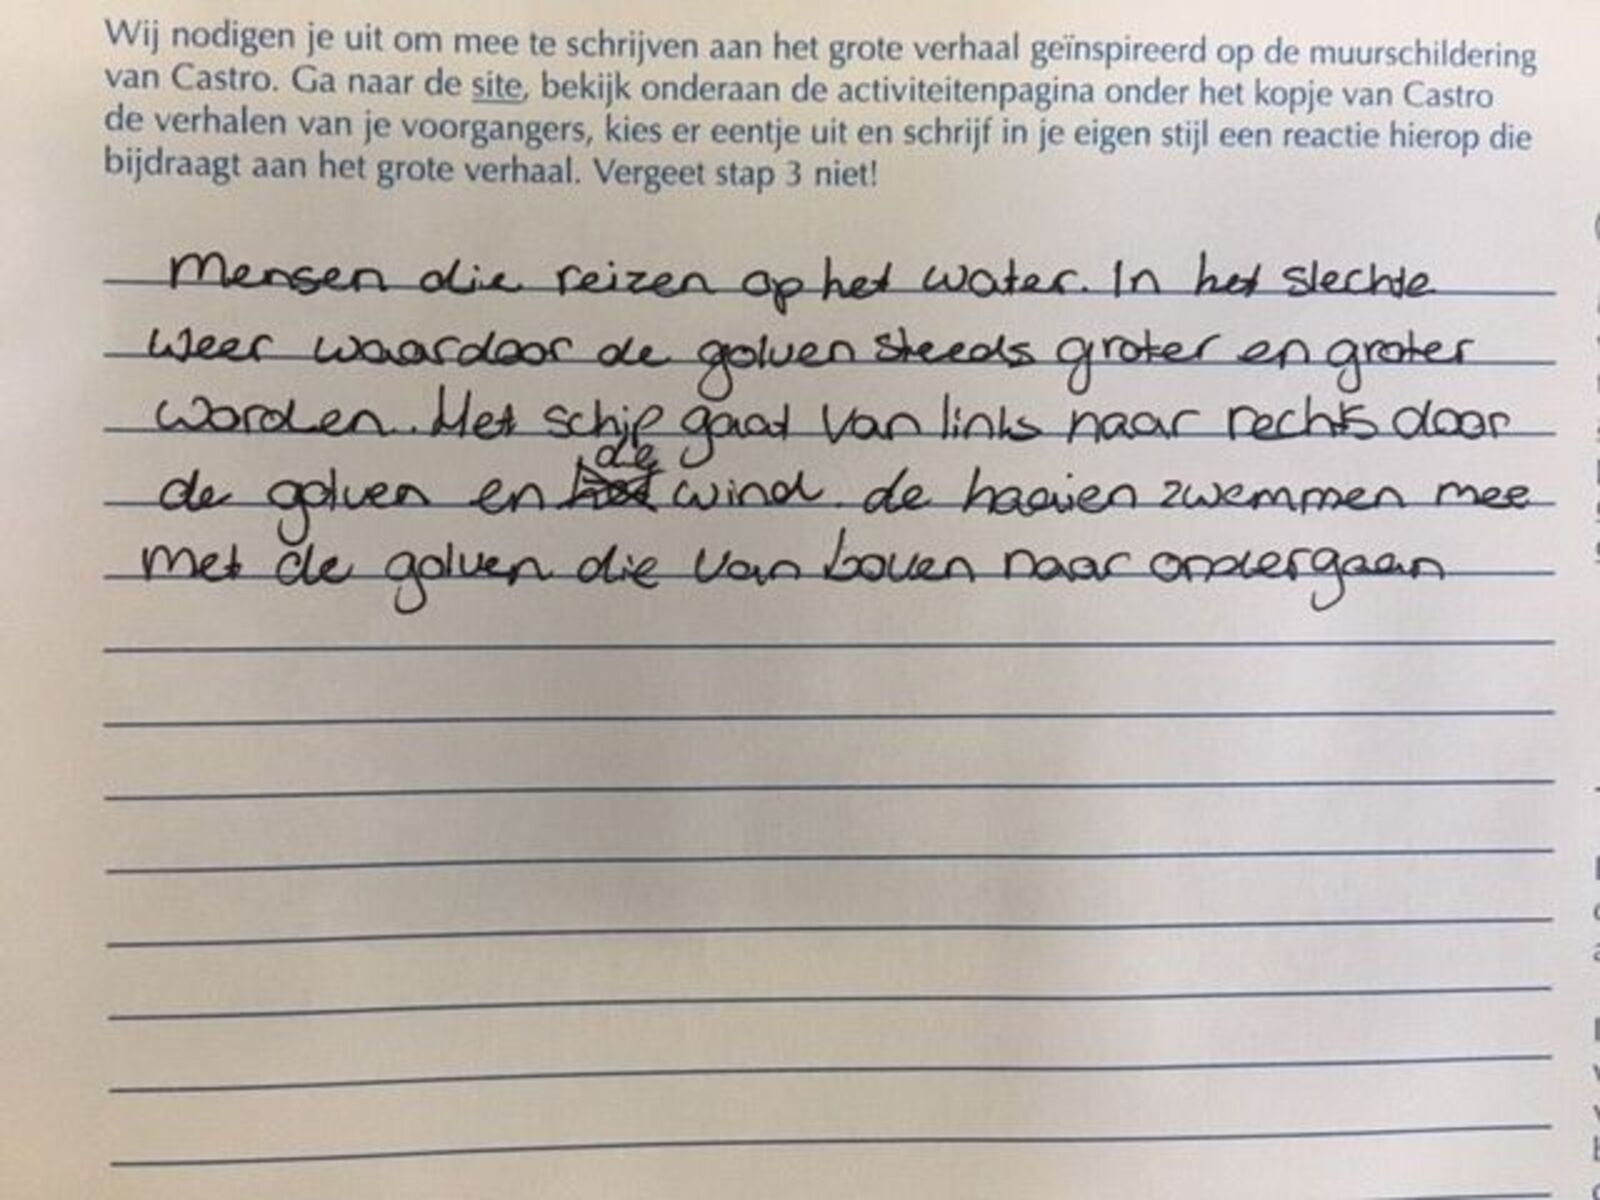 Wij nodigen je uit om mee te schrijven aan het grote verhaal geïnspireerd op de muurschildering
van Castro. Ga naar de site, bekijk onderaan de activiteitenpagina onder het kopje van Castro
de verhalen van je voorgangers, kies er eentje uit en schrijf in je eigen stijl een reactie hierop die
bijdraagt aan het grote verhaal. Vergeet stap 3 niet!
Mensen die reizen op het water. In het slechte
weer waardoor de golven steeds groter en groter
worden. Het schip gaat van links naar rechts door
de golven en de wind. de haaien zwemmen mee
met de golven die van boven naar onder gaan